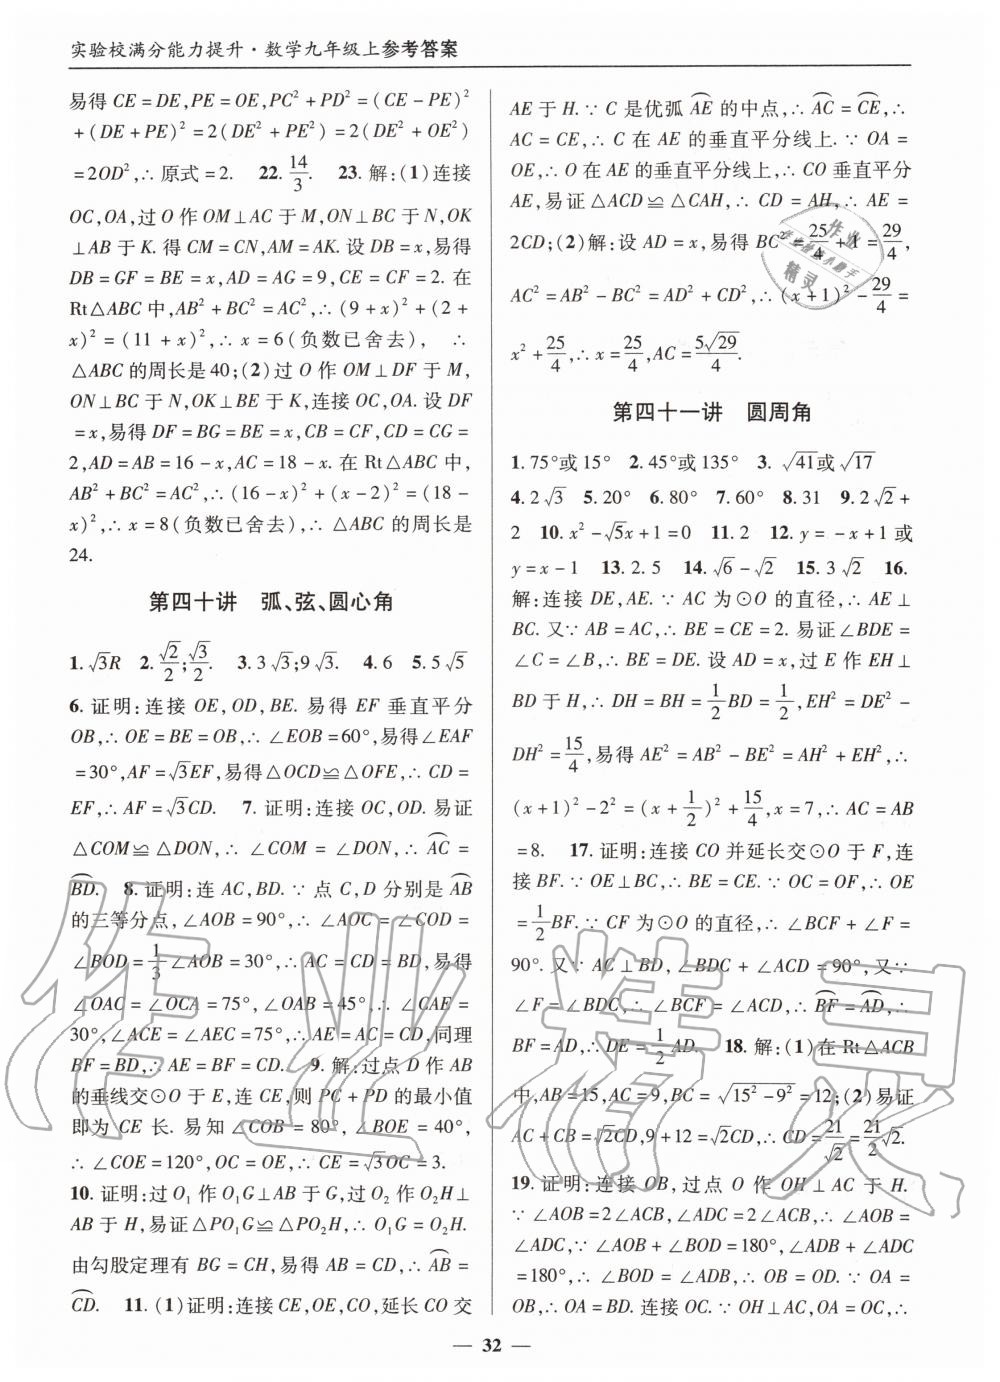 实验校满分能力提升·数学九年级上参考答案
易得 CE=DE,PE=OE,PC²+PD²=(CE-PE)²
+(DE+PE)²=2(DE²+PE²)=2(DE²+OE²)
=2OD²,∴原式=2. 22. 14/3. 23. 解:(1)连接
OC,OA,过 O 作 OM⊥AC 于 M,ON⊥BC 于 N,OK
⊥AB 于 K. 得 CM=CN,AM=AK. 设 DB=x,易得
DB=GF=BE=x,AD=AG=9,CE=CF=2. 在
Rt△ABC 中,AB²+BC²=AC²,∴(9+x)²+(2+
x)²=(11+x)²,∴x=6(负数已舍去), ∴
△ABC 的周长是 40;(2)过 O 作 OM⊥DF 于 M,
ON⊥BC 于 N,OK⊥BE 于 K,连接 OC,OA. 设 DF
=x,易得 DF=BG=BE=x,CB=CF,CD=CG=
2,AD=AB=16-x,AC=18-x. 在 Rt△ABC 中,
AB²+BC²=AC²,∴(16-x)²+(x-2)²=(18-
x)²,∴x=8(负数已舍去),∴△ABC 的周长是
24.
第四十讲 弧、弦、圆心角
1. √3R 2. √2/2;√3/2. 3. 3√3;9√3. 4. 6 5. 5√5
6. 证明:连接 OE,OD,BE. 易得 EF 垂直平分
OB,∴OE=BE=OB,∴∠EOB=60°,易得∠EAF
=30°,AF=√3EF,易得△OCD≌△OFE,∴CD=
EF,∴AF=√3CD. 7. 证明:连接 OC,OD. 易证
△COM≌△DON,∴∠COM=∠DON,∴A͡C=
B͡D. 8. 证明:连 AC,BD.∵点 C,D 分别是 A͡B
的三等分点,∠AOB=90°,∴∠AOC=∠COD=
∠BOD=1/3∠AOB=30°,∴AC=CD=BD,易得
∠OAC=∠OCA=75°,∠OAB=45°,∴∠CAE=
30°,∠ACE=∠AEC=75°,∴AE=AC=CD,同理
BF=BD,∴AE=BF=CD. 9. 解:过点 D 作 AB
的垂线交⊙O 于 E,连 CE,则 PC+PD 的最小值
即为 CE 长. 易知∠COB=80°,∠BOE=40°,
∴∠COE=120°,OC=OE,∴CE=√3OC=3.
10. 证明:过 O₁ 作 O₁G⊥AB 于 G,过 O₂ 作 O₂H⊥
AB 于 H,易证△PO₁G≌△PO₂H,∴O₁G=O₂H.
由勾股定理有 BG=CH,易得 AB=CD,∴A͡B=
C͡D. 11. (1)证明:连接 CE,OE,CO,延长 CO 交
AE 于 H.∵C 是优弧 A͡E 的中点,∴A͡C=C͡E,∴
AC=CE,∴C 在 AE 的垂直平分线上.∵OA=
OE,∴O 在 AE 的垂直平分线上,∴CO 垂直平分
AE,易证△ACD≌△CAH,∴CD=AH,∴AE=
2CD;(2)解:设 AD=x,易得 BC²=25/4+1=29/4,
AC²=AB²-BC²=AD²+CD²,∴(x+1)²-29/4=
x²+25/4,∴x=25/4,AC=5√29/4.
第四十一讲 圆周角
1. 75°或 15° 2. 45°或 135° 3. √41或√17
4. 2√3 5. 20° 6. 80° 7. 60° 8. 31 9. 2√2+
2 10. x²-√5x+1=0 11. 2 12. y=-x+1 或
y=x-1 13. 2.5 14. √6-√2 15. 3√2 16.
解:连接 DE,AE.∵AC 为⊙O 的直径,∴AE⊥
BC. 又∵AB=AC,∴BE=CE=2. 易证∠BDE=
∠C=∠B,∴BE=DE. 设 AD=x,过 E 作 EH⊥
BD 于 H,∴DH=BH=1/2BD=1/2,EH²=DE²-
DH²=15/4,易得 AE²=AB²-BE²=AH²+EH²,∴
(x+1)²-2²=(x+1/2)²+15/4,x=7,∴AC=AB
=8. 17. 证明:连接 CO 并延长交⊙O 于 F,连
接 BF.∵OE⊥BC,∴BE=CE.∵OC=OF,∴OE
=1/2BF.∵CF 为⊙O 的直径,∴∠BCF+∠F=
90°. 又∵AC⊥BD,∠BDC+∠ACD=90°,又∵
∠F=∠BDC,∴∠BCF=∠ACD,∴B͡F=A͡D,∴
BF=AD,∴DE=1/2AD. 18. 解:(1)在 Rt△ACB
中,AB=15,AC=9,BC=√(15²-9²)=12;(2)易证
AC+CB=√2CD,9+12=√2CD,∴CD=21/√2=21/2√2.
19. 证明:连接 OB,过点 O 作 OH⊥AC 于 H.
∵∠AOB=2∠ACB,∠ADC=2∠ACB,∴∠AOB=
∠ADC,∵∠AOB+∠BOD=180°,∠ADB+∠ADC
=180°,∴∠BOD=∠ADB,∴OB=OD.∵OA=
OB,∴OA=BD. 连接 OC.∵OH⊥AC,OA=OC,∴
32
作业精灵